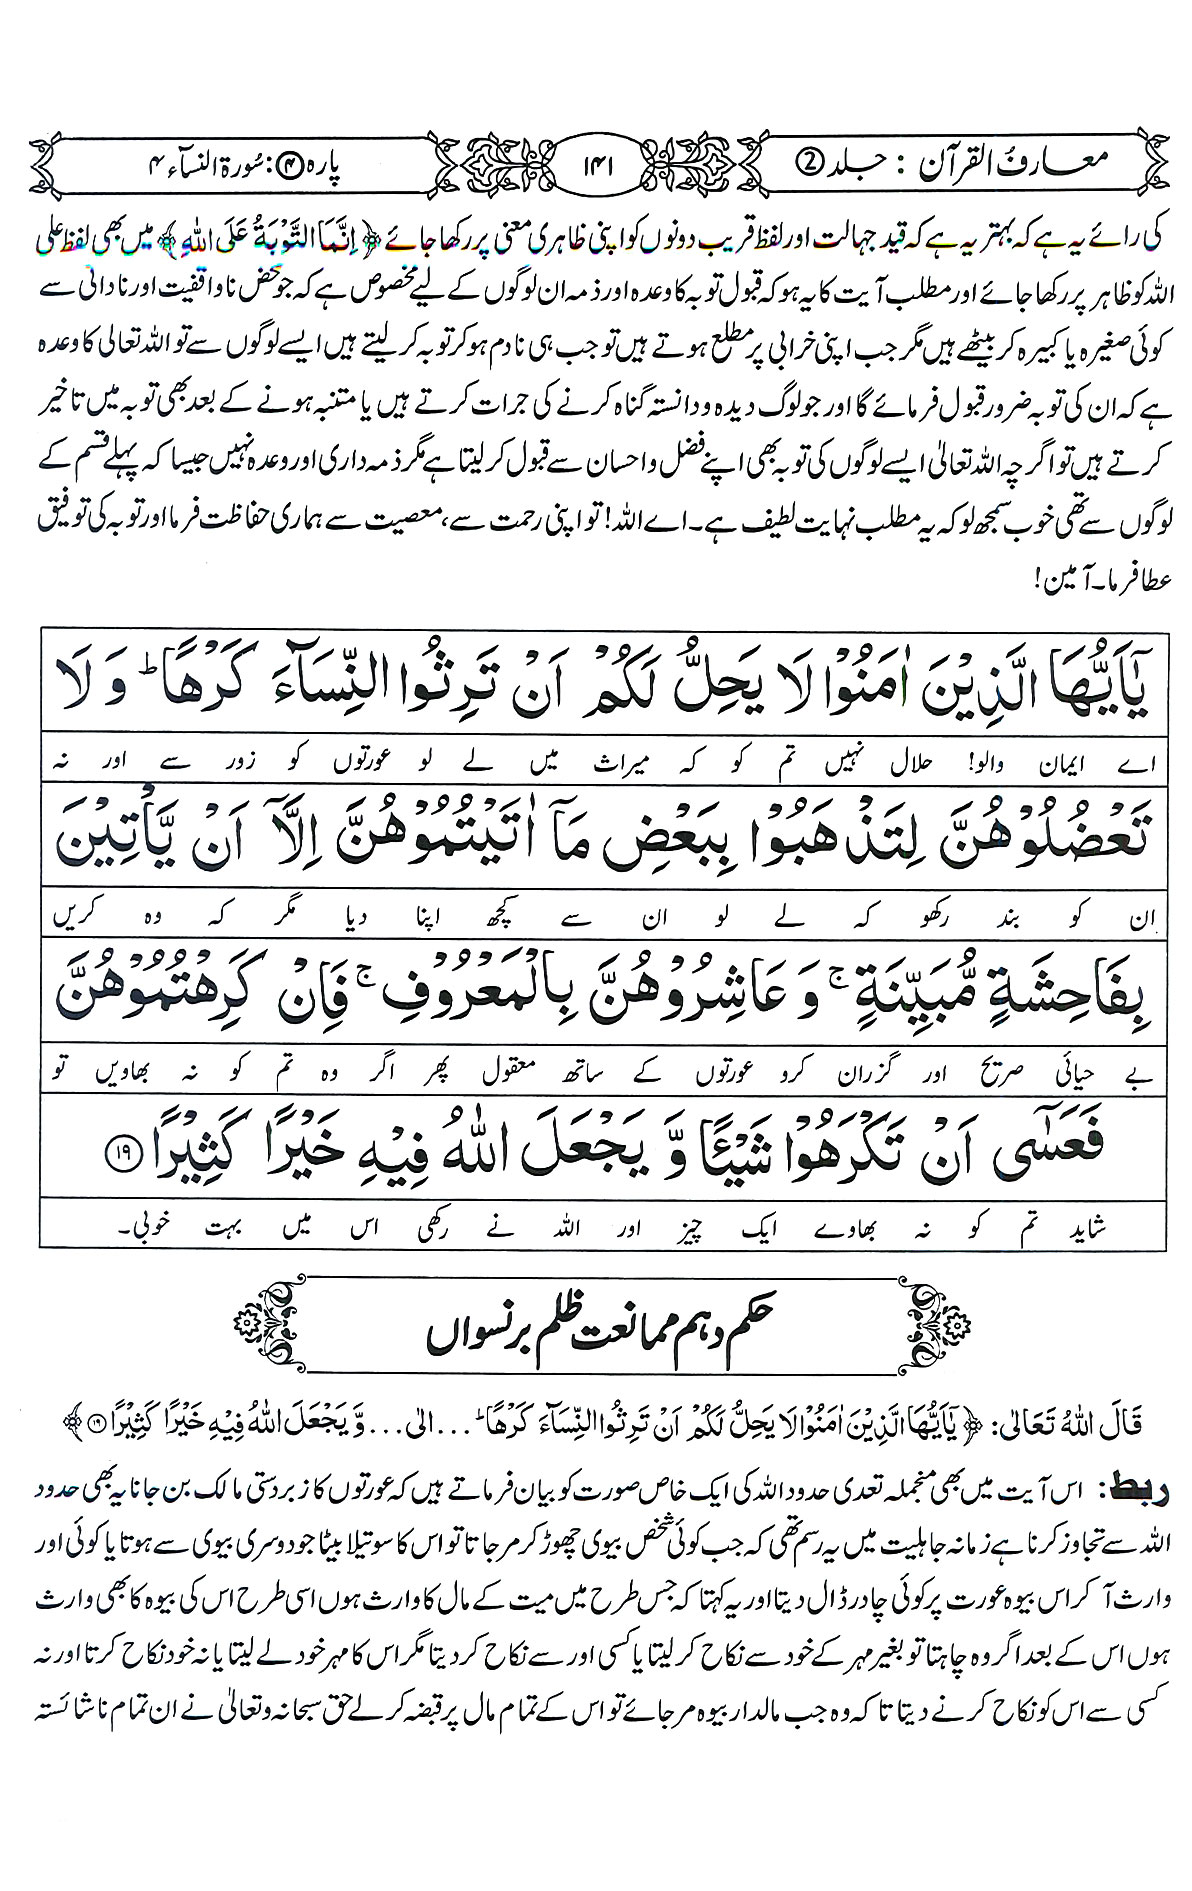 معارف القرآن : جلد ②
۱۴۱
پارہ ④: سُورۃ النسآء ۴
کی رائے یہ ہے کہ بہتر یہ ہے کہ قید جہالت اور لفظ قریب دونوں کو اپنی ظاہری معنی پر رکھا جائے ﴿ اِنَّمَا التَّوْبَةُ عَلَى اللّٰهِ ﴾ میں بھی لفظ علی
اللہ کو ظاہر پر رکھا جائے اور مطلب آیت کا یہ ہو کہ قبول توبہ کا وعدہ اور ذمہ ان لوگوں کے لیے مخصوص ہے کہ جو محض ناواقفیت اور نادانی سے
کوئی صغیرہ یا کبیرہ کر بیٹھے ہیں مگر جب اپنی خرابی پر مطلع ہوتے ہیں تو جب ہی نادم ہوکر توبہ کر لیتے ہیں ایسے لوگوں سے تو اللہ تعالی کا وعدہ
ہے کہ ان کی توبہ ضرور قبول فرمائے گا اور جو لوگ دیدہ ودانستہ گناہ کرنے کی جرات کرتے ہیں یا متنبہ ہونے کے بعد بھی توبہ میں تاخیر
کرتے ہیں تو اگر چہ اللہ تعالیٰ ایسے لوگوں کی توبہ بھی اپنے فضل واحسان سے قبول کر لیتا ہے مگر ذمہ داری اور وعدہ نہیں جیسا کہ پہلے قسم کے
لوگوں سے تھی خوب سمجھ لو کہ یہ مطلب نہایت لطیف ہے۔ اے اللہ! تو اپنی رحمت سے، معصیت سے ہماری حفاظت فرما اور توبہ کی توفیق
عطا فرما۔ آمین!
يٰٓاَيُّهَا الَّذِيْنَ اٰمَنُوْا لَا يَحِلُّ لَكُمْ اَنْ تَرِثُوا النِّسَآءَ كَرْهًا ؕ وَ لَا
اے ایمان والو! حلال نہیں تم کو کہ میراث میں لے لو عورتوں کو زور سے اور نہ
تَعْضُلُوْهُنَّ لِتَذْهَبُوْا بِبَعْضِ مَآ اٰتَيْتُمُوْهُنَّ اِلَّآ اَنْ يَّاْتِيْنَ
ان کو بند رکھو کہ لے لو ان سے کچھ اپنا دیا مگر کہ وہ کریں
بِفَاحِشَةٍ مُّبَيِّنَةٍ ۚ وَ عَاشِرُوْهُنَّ بِالْمَعْرُوْفِ ۚ فَاِنْ كَرِهْتُمُوْهُنَّ
بے حیائی صریح اور گزران کرو عورتوں کے ساتھ معقول پھر اگر وہ تم کو نہ بھاویں تو
فَعَسٰٓى اَنْ تَكْرَهُوْا شَيْـًٔا وَّ يَجْعَلَ اللّٰهُ فِيْهِ خَيْرًا كَثِيْرًا ۝۱۹
شاید تم کو نہ بھاوے ایک چیز اور اللہ نے رکھی اس میں بہت خوبی۔
حکم دہم ممانعت ظلم بر نسواں
قَالَ اللهُ تَعَالىٰ: ﴿ يٰٓاَيُّهَا الَّذِيْنَ اٰمَنُوْا لَا يَحِلُّ لَكُمْ اَنْ تَرِثُوا النِّسَآءَ كَرْهًا ؕ ... الٰى ... وَّ يَجْعَلَ اللّٰهُ فِيْهِ خَيْرًا كَثِيْرًا ۝۱۹ ﴾
ربط: اس آیت میں بھی منجملہ تعدی حدود اللہ کی ایک خاص صورت کو بیان فرماتے ہیں کہ عورتوں کا زبردستی مالک بن جانا یہ بھی حدود
اللہ سے تجاوز کرنا ہے زمانہ جاہلیت میں یہ رسم تھی کہ جب کوئی شخص بیوی چھوڑ کر مر جاتا تو اس کا سوتیلا بیٹا جو دوسری بیوی سے ہوتا یا کوئی اور
وارث آ کر اس بیوہ عورت پر کوئی چادر ڈال دیتا اور یہ کہتا کہ جس طرح میں میت کے مال کا وارث ہوں اسی طرح اس کی بیوہ کا بھی وارث
ہوں اس کے بعد اگر وہ چاہتا تو بغیر مہر کے خود سے نکاح کر لیتا یا کسی اور سے نکاح کر دیتا مگر اس کا مہر خود لے لیتا یا نہ خود نکاح کرتا اور نہ
کسی سے اس کو نکاح کرنے دیتا تا کہ وہ جب مالدار بیوہ مر جائے تو اس کے تمام مال پر قبضہ کر لے حق سبحانہ وتعالیٰ نے ان تمام ناشائستہ